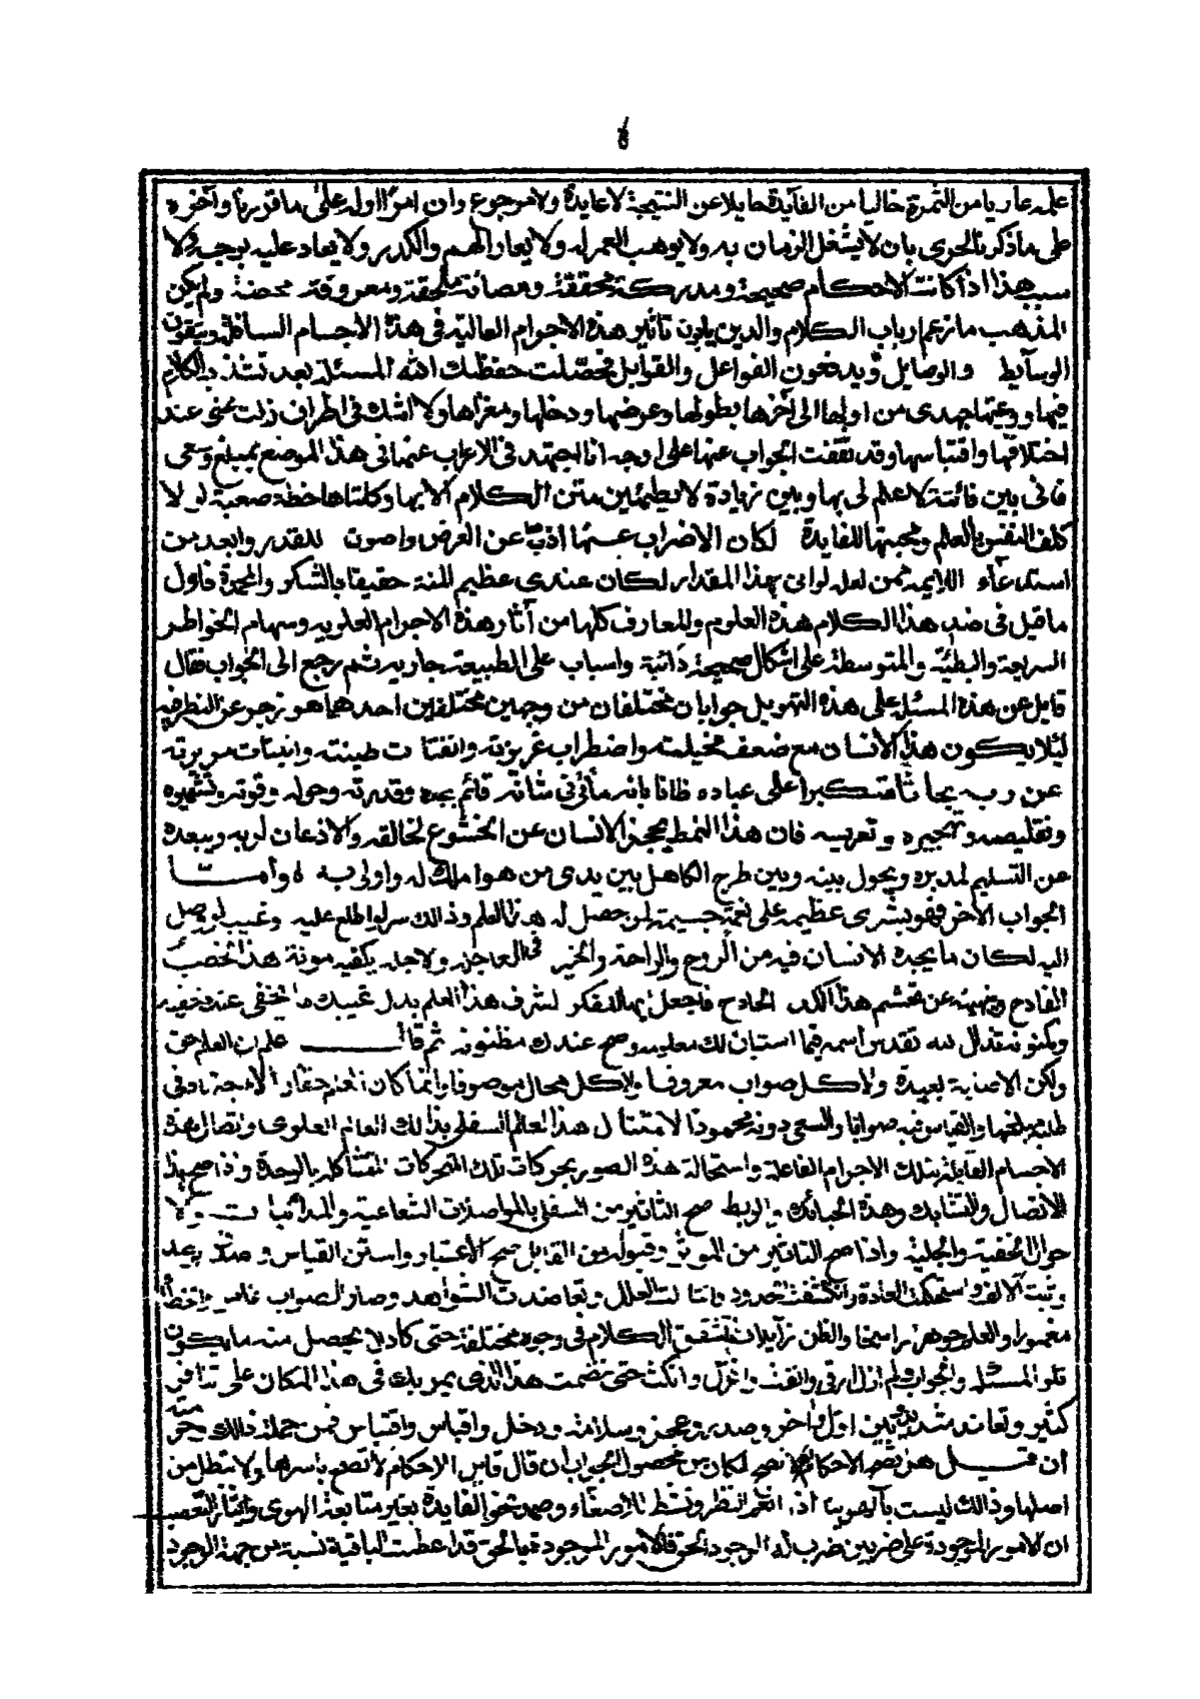 علمه عاريا من الثمرة خاليا من الفآيدة حايلا عن النتيجة لا عايدة ولا مرجوع وان امرا اوله على ما قررنا وآخره
على ما ذكرنا لحرى بان لا يشغل الزمان به ولا يوهب العمر له ولا يعار الهم والكدر ولا يعاد عليه بوجه ولا
سبب هذا اذا كانت الاحكام صحيحة ومدركة محققة ومصابة ملحقة ومعروفة محضة ولم يكن
المذهب ما زعم ارباب الكلام والذين يابون تأثير هذه الاجرام العالية في هذه الاجسام السافلة وينقون
الوسآيط والوصايل ويدفعون الفواعل والقوابل فحصلت حفظك الله المسئلة بعد
فيها ووعيتها جهدى من اولها الى آخرها بطولها وعرضها ودخلها ومغزاها ولا اشك في اطراف زلت عنى عند
اختلافها واقتباسها وقد نقفت الجواب عنها على اوجه انا اجتهد في الاعراب عنها في هذا الموضع بمبلغ وسعى
فانى بين فائتة لا علم لى بها وبين زيادة لا يطمئن متن الكلام الا بها وكلتاها خطة صعبة لو لا
كلف النفس بالعلم ومحبتها للفايدة لكان الاضراب عنها اذب عن العرض واصوت للقدر وابعد من
استدعآء اللايمة فمن لعله لو اتى بهذا المقدار لكان عندى عظيم المنة حقيقا بالشكر والمحمدة فاول
ما قيل في ضد هذا الكلام هذه العلوم والمعارف كلها من آثار هذه الاجرام العلوية وسهام الخواطر
السريعة والبطيئة والمتوسطة على اشكال صحيحة دائبة واسباب على الطبيعة جارية ثم رجع الى الجواب فقال
قايل عن هذه المسئلة على هذه التهويل جوابان مختلفان من وجهين مختلفين احدهما هو زجر عن النظر فيه
ليلا يكون هذا الانسان مع ضعف مخيلته واضطراب غريزته وانفتات طينته وانبتات مريرته
عن ربه بحاثا متكبرا على عباده ظانا بانه مأتى في شانه قائم بجده وقدرته وحوله وقوته وتشميره
وتقليصه وتهجيره وتعريسه فان هذا النمط يحجز الانسان عن الخشوع لخالقه والاذعان لربه ويبعده
عن التسليم لمدبره ويحول بينه وبين طرح الكاهل بين يدى من هو املك له واولى به ه وأمـــا
الجواب الآخر فهو بشرى عظيمة على نعمة جسيمة لمن حصل له هذا العلم وذالك سر لو اطلع عليه وغيب لو وصل
اليه لكان ما يجده الانسان فيه من الروح والراحة والخير في العاجلة والآجلة يكفيه مونة هذا الخصب
الفادح ويهينه عن تجشم هذا الكد الكادح فاجعل بها المفكر لشرف هذا العلم بدل غيبك ما يخفى عنه خفيه
ومكنونه تذلل لله تقدس اسمه فيما استبان لك معلومه وصح عندك مظنونه ثم قال ــــ علم ان العلم حق
ولكن الاصابة بعيدة ولا كل صواب معروفا ولا كل محال موصوفا وانما كان العلم حقا والاجتهاد في
طلبه بلغها والقياس فيه صوابا والسعى دونه محمودا لامتثال هذا العالم السفلى بذالك العالم العلوى واتصال هذه
الاجسام القابلة بتلك الاجرام الفاعلة واستحالة هذه الصور بحركات تلك المتحركات المتشاكلة بالوحدة واذا صح هذا
الاتصال والتشابك وهذه الحبائك والربط صح التاثير من السفلى بالمواصلات الشعاعية والمناسبات ولا
حوال الخفية والجلية واذا صح التاثير من المؤثر وقبوله من القابل صح الاعتبار واستن القياس وصدق الرصد
وثبت الالف واستحكمت العادة وانكشفت الحدود وانثالت العلل وتعاضدت الشواهد وصار الصواب غامرا والخطأ
مغمورا والعلم جوهرا راسخا والظن زايلا فتشقق الكلام في وجوه مختلفة حتى كاد لا يحصل منه ما يكون
تلو المسئلة والجواب ولم ازل ارقى وانفث واغزل وانكث حتى نظمت هذا الذى يمر بك في هذا المكان على تنافر
كثير وتعاند شديد بين اول وآخر وصدر وعجز وسلامة ودخل واقباس واقتباس فمن جملة ذالك وجر منه
ان قيل هل تصح الاحكام ام لا تصح لكان من محصول الجواب ان قال قايل الاحكام لا تصح باسرها ولا تبطل من
اصلها وذالك ليست بالهوينا اذا انعم النظر وبسط الاصغاء وصمد نحو الفايدة بغير متابعة الهوى وايثار التعصب
ان الامور الموجودة على ضربين ضرب له الوجود الحق فالامور الموجودة بالحق قد اعطت الباقية نسبة من جهة الوجود